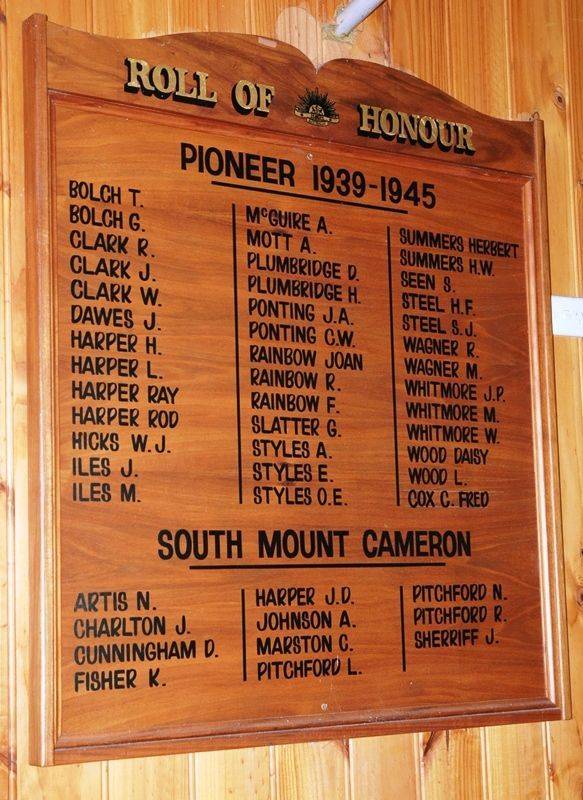 ROLL OF HONOUR
PIONEER 1939-1945
BOLCH T.
BOLCH G.
CLARK R.
CLARK J.
CLARK W.
DAWES J.
HARPER H.
HARPER L.
HARPER RAY
HARPER ROD
HICKS W.J.
ILES J.
ILES M.
McGUIRE A.
MOTT A.
PLUMBRIDGE D.
PLUMBRIDGE H.
PONTING J.A.
PONTING C.W.
RAINBOW JOAN
RAINBOW R.
RAINBOW F.
SLATTER G.
STYLES A.
STYLES E.
STYLES O.E.
SUMMERS HERBERT
SUMMERS H.W.
SEEN S.
STEEL H.F.
STEEL S.J.
WAGNER R.
WAGNER M.
WHITMORE J.P.
WHITMORE M.
WHITMORE W.
WOOD DAISY
WOOD L.
COX C. FRED
SOUTH MOUNT CAMERON
ARTIS N.
CHARLTON J.
CUNNINGHAM D.
FISHER K.
HARPER J.D.
JOHNSON A.
MARSTON C.
PITCHFORD L.
PITCHFORD N.
PITCHFORD R.
SHERRIFF J.